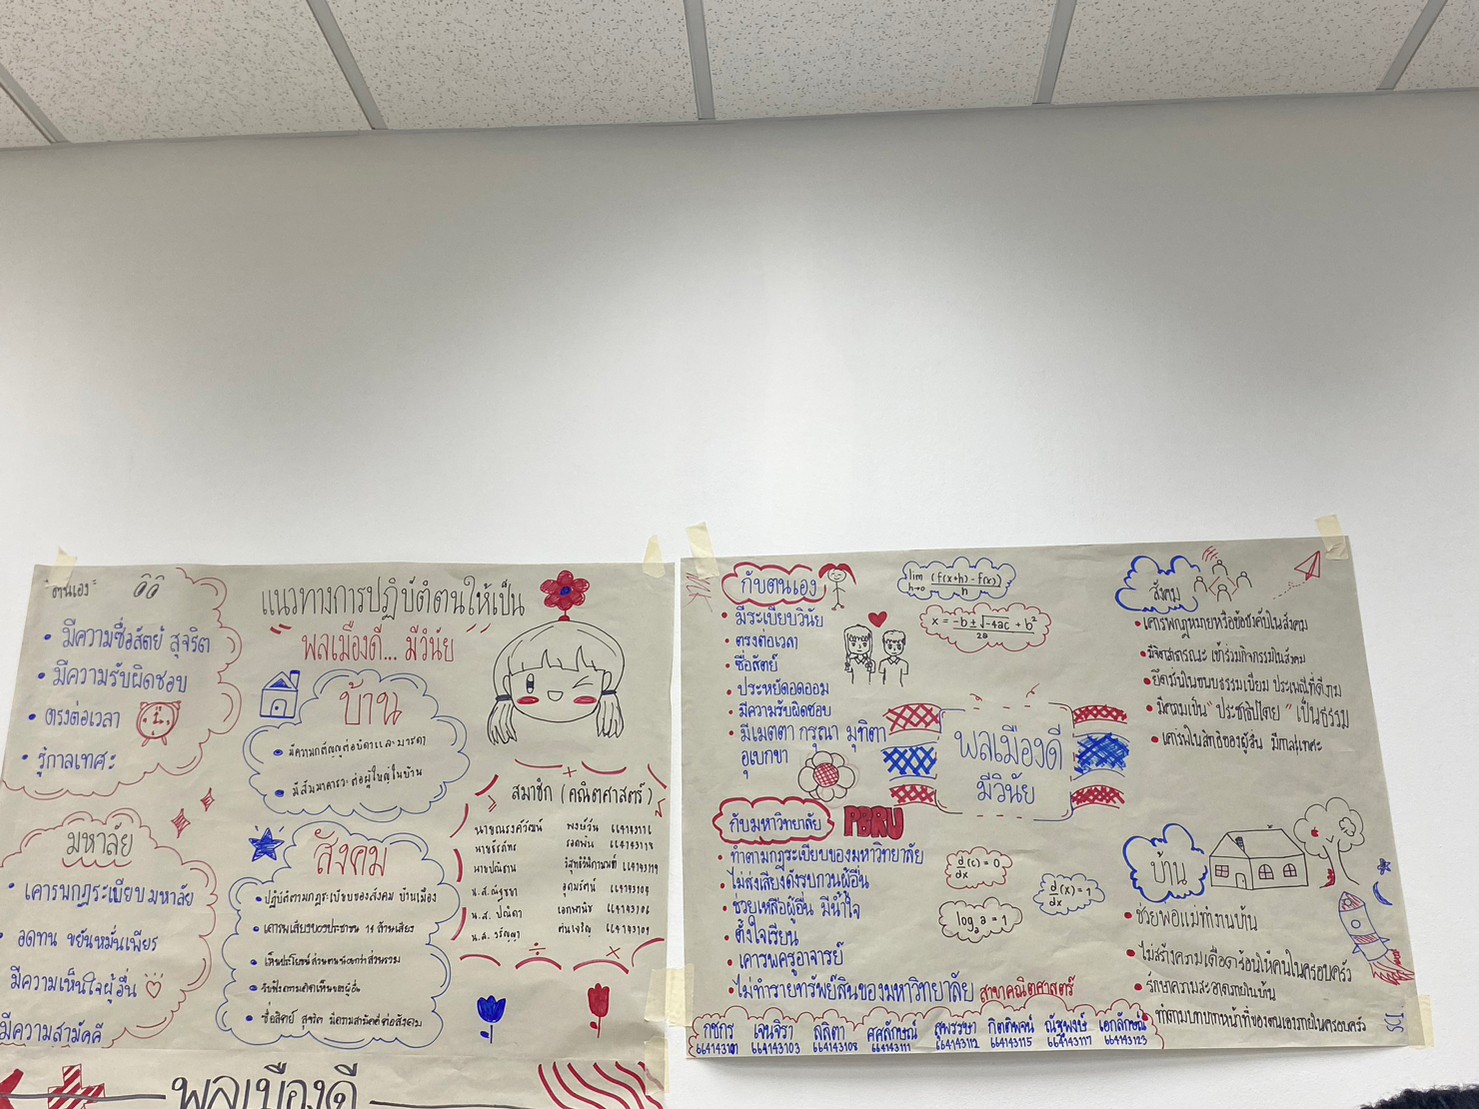 "ตนเอง"
• มีความซื่อสัตย์ สุจริต
• มีความรับผิดชอบ
• ตรงต่อเวลา
• รู้กาลเทศะ
มหาลัย
• เคารพกฎระเบียบมหาลัย
• อดทน ขยันหมั่นเพียร
มีความเห็นใจผู้อื่น
มีความสามัคคี
แนวทางการปฏิบัติตนให้เป็น
"พลเมืองดี... มีวินัย"
บ้าน
• มีความกตัญญูต่อบิดาและมารดา
• มีสัมมาคารวะต่อผู้ใหญ่ในบ้าน
สังคม
• ปฏิบัติตามกฎระเบียบของสังคม บ้านเมือง
• เคารพเสียงของประชาชน 14 ล้านเสียง
• เห็นประโยชน์ส่วนตนน้อยกว่าส่วนรวม
• รับฟังความคิดเห็นของผู้อื่น
• ซื่อสัตย์ สุจริต มีความสามัคคีต่อสังคม
สมาชิก (คณิตศาสตร์)
664143116
664143118
664143119
น.ส. ณัฐชยา 664143104
น.ส. ปณิดา 664143106
น.ส. 664143109
พลเมืองดี
กับตนเอง
• มีระเบียบวินัย
• ตรงต่อเวลา
• ซื่อสัตย์
• ประหยัดอดออม
• มีความรับผิดชอบ
• มีเมตตา กรุณา มุทิตา
อุเบกขา
lim h→0 (f(x+h) - f(x)) / h
x = -b ± √-4ac + b² / 2a
พลเมืองดี
มีวินัย
กับมหาวิทยาลัย
PBRU
• ทำตามกฎระเบียบของมหาวิทยาลัย
• ไม่ส่งเสียงดังรบกวนผู้อื่น
• ช่วยเหลือผู้อื่น มีน้ำใจ
• ตั้งใจเรียน
• เคารพครูอาจารย์
• ไม่ทำรายทรัพย์สินของมหาวิทยาลัย
สาขาคณิตศาสตร์
d/dx (c) = 0
d/dx (x) = 1
logₐ a = 1
สังคม
• เคารพกฎหมายหรือข้อบังคับในสังคม
• มีจิตสาธารณะ เข้าร่วมกิจกรรมในสังคม
• ยึดมั่นในขนบธรรมเนียม ประเพณีที่ดีงาม
• มีความเป็น "ประชาธิปไตย" เป็นธรรม
• เคารพในสิทธิของผู้อื่น มีกาลเทศะ
บ้าน
• ช่วยพ่อแม่ทำงานบ้าน
• ไม่สร้างความเดือดร้อนให้คนในครอบครัว
• รักษาความสะอาดภายในบ้าน
ทำตามบทบาทหน้าที่ของตนเองภายในครอบครัว
กชกร เจนจิรา ลลิตา ศศลักษณ์ สุพรรษา กิตติพจน์ ณัฐพงษ์ เอกลักษณ์
664143101 664143103 664143108 664143111 664143112 664143115 664143117 664143123